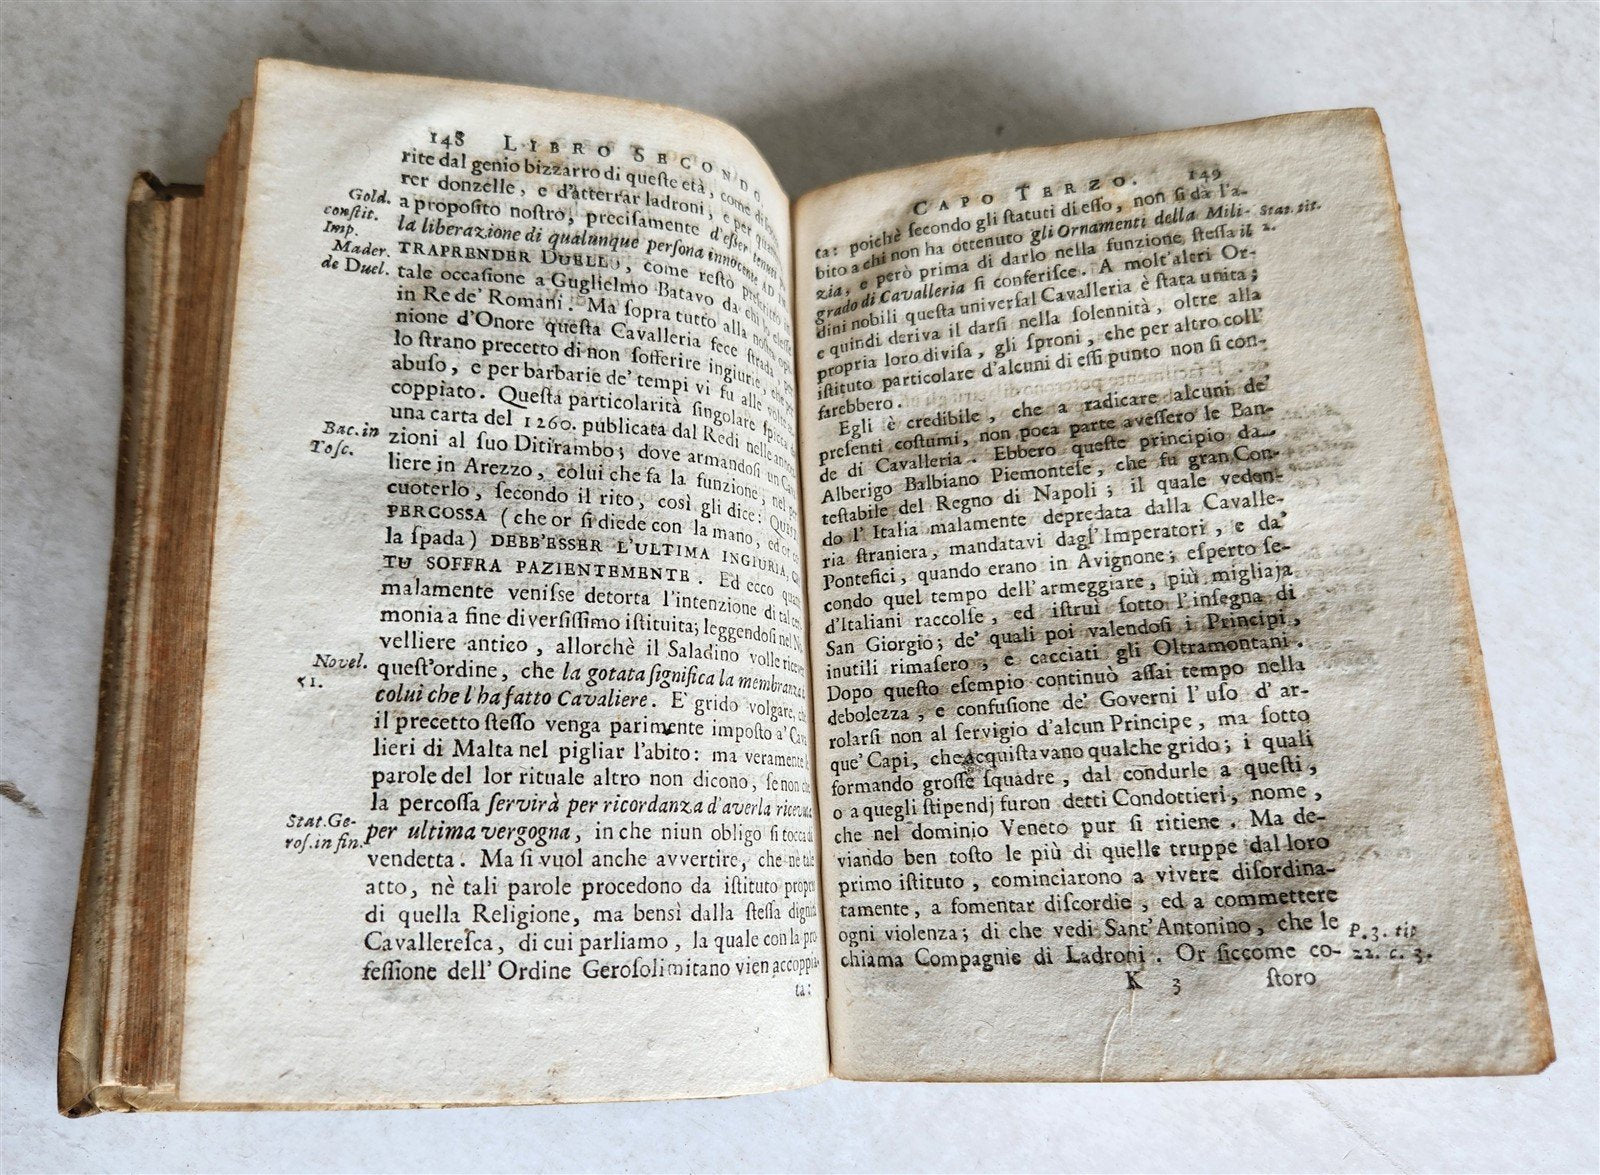 148 LIBRO SECONDO.
rite dal genio bizzarro di queſte età, come di
rer donzelle, e d'atterrar ladroni, e per quanto
Gold. a propoſito noſtro, preciſamente d'eſſer tenuti
conſtit. la liberazione di qualunque perſona innocente AD IN
Imp.
Mader. TRAPRENDER DUELLO, come reſtò preſcritto in
de Duel. tale occaſione a Guglielmo Batavo da chi lo eleſſe
in Re de' Romani. Ma ſopra tutto alla noſtra opi-
nione d'Onore queſta Cavalleria fece ſtrada
lo ſtrano precetto di non ſofferire ingiurie, che per
abuſo, e per barbarie de' tempi vi fu alle volte ac-
coppiato. Queſta particolarità ſingolare ſpicca da
una carta del 1260. publicata dal Redi nelle annota-
Bac. in zioni al ſuo Ditirambo; dove armandoſi un Cava-
Toſc. liere in Arezzo, colui che fa la funzione, nel per-
cuoterlo, ſecondo il rito, così gli dice: QUESTA
PERCOSSA (che or ſi diede con la mano, ed or con
la ſpada) DEBB'ESSER L'ULTIMA INGIURIA, CHE
TU SOFFRA PAZIENTEMENTE. Ed ecco quanto
malamente veniſse detorta l'intenzione di tal ceri-
monia a fine diverſiſſimo iſtituita; leggendoſi nel No-
velliere antico, allorchè il Saladino volle ricever
Novel. queſt'ordine, che la gotata ſignifica la membranza di
51. colui che l'ha fatto Cavaliere. E' grido volgare, che
il precetto ſteſſo venga parimente impoſto a' Cava-
lieri di Malta nel pigliar l'abito: ma veramente le
parole del lor rituale altro non dicono, ſe non che
la percoſſa ſervirà per ricordanza d'averla ricevuta
Stat. Ge- per ultima vergogna, in che niun obligo ſi tocca di
roſ. in fin. vendetta. Ma ſi vuol anche avvertire, che nè tale
atto, nè tali parole procedono da iſtituto proprio
di quella Religione, ma bensì dalla ſteſſa dignità
Cavallereſca, di cui parliamo, la quale con la pro-
feſſione dell'Ordine Geroſolimitano vien accoppia-
ta:
CAPO TERZO. 149
ta: poichè ſecondo gli ſtatuti di eſſo, non ſi dà l'a-
bito a chi non ha ottenuto gli Ornamenti della Mili- Stat. tit.
zia, e però prima di darlo nella funzione ſteſſa il 2.
grado di Cavalleria ſi conferiſce. A molt'altri Or-
dini nobili queſta univerſal Cavalleria è ſtata unita;
e quindi deriva il darſi nella ſolennità, oltre alla
propria loro diviſa, gli ſproni, che per altro coll'
iſtituto particolare d'alcuni di eſſi punto non ſi con-
farebbero.
Egli è credibile, che a radicare alcuni de'
preſenti coſtumi, non poca parte aveſſero le Ban-
de di Cavalleria. Ebbero queſte principio da
Alberigo Balbiano Piemonteſe, che fu gran Con-
teſtabile del Regno di Napoli; il quale veden-
do l'Italia malamente depredata dalla Cavalle-
ria ſtraniera, mandatavi dagl'Imperatori, e da'
Pontefici, quando erano in Avignone; eſperto ſe-
condo quel tempo dell'armeggiare, più migliaja
d'Italiani raccolſe, ed iſtruì ſotto l'inſegna di
San Giorgio; de' quali poi valendoſi i Principi,
inutili rimaſero, e cacciati gli Oltramontani.
Dopo queſto eſempio continuò aſſai tempo nella
debolezza, e confuſione de' Governi l'uſo d'ar-
rolarſi non al ſervigio d'alcun Principe, ma ſotto
que' Capi, che acquiſtavano qualche grido; i quali
formando groſſe ſquadre, dal condurle a queſti,
o a quegli ſtipendj furon detti Condottieri, nome,
che nel dominio Veneto pur ſi ritiene. Ma de-
viando ben toſto le più di quelle truppe dal loro
primo iſtituto, cominciarono a vivere diſordina-
tamente, a fomentar diſcordie, ed a commettere
ogni violenza; di che vedi Sant'Antonino, che le P. 3. tit
chiama Compagnie di Ladroni. Or ſiccome co- 22. c. 3.
K 3 ſtoro